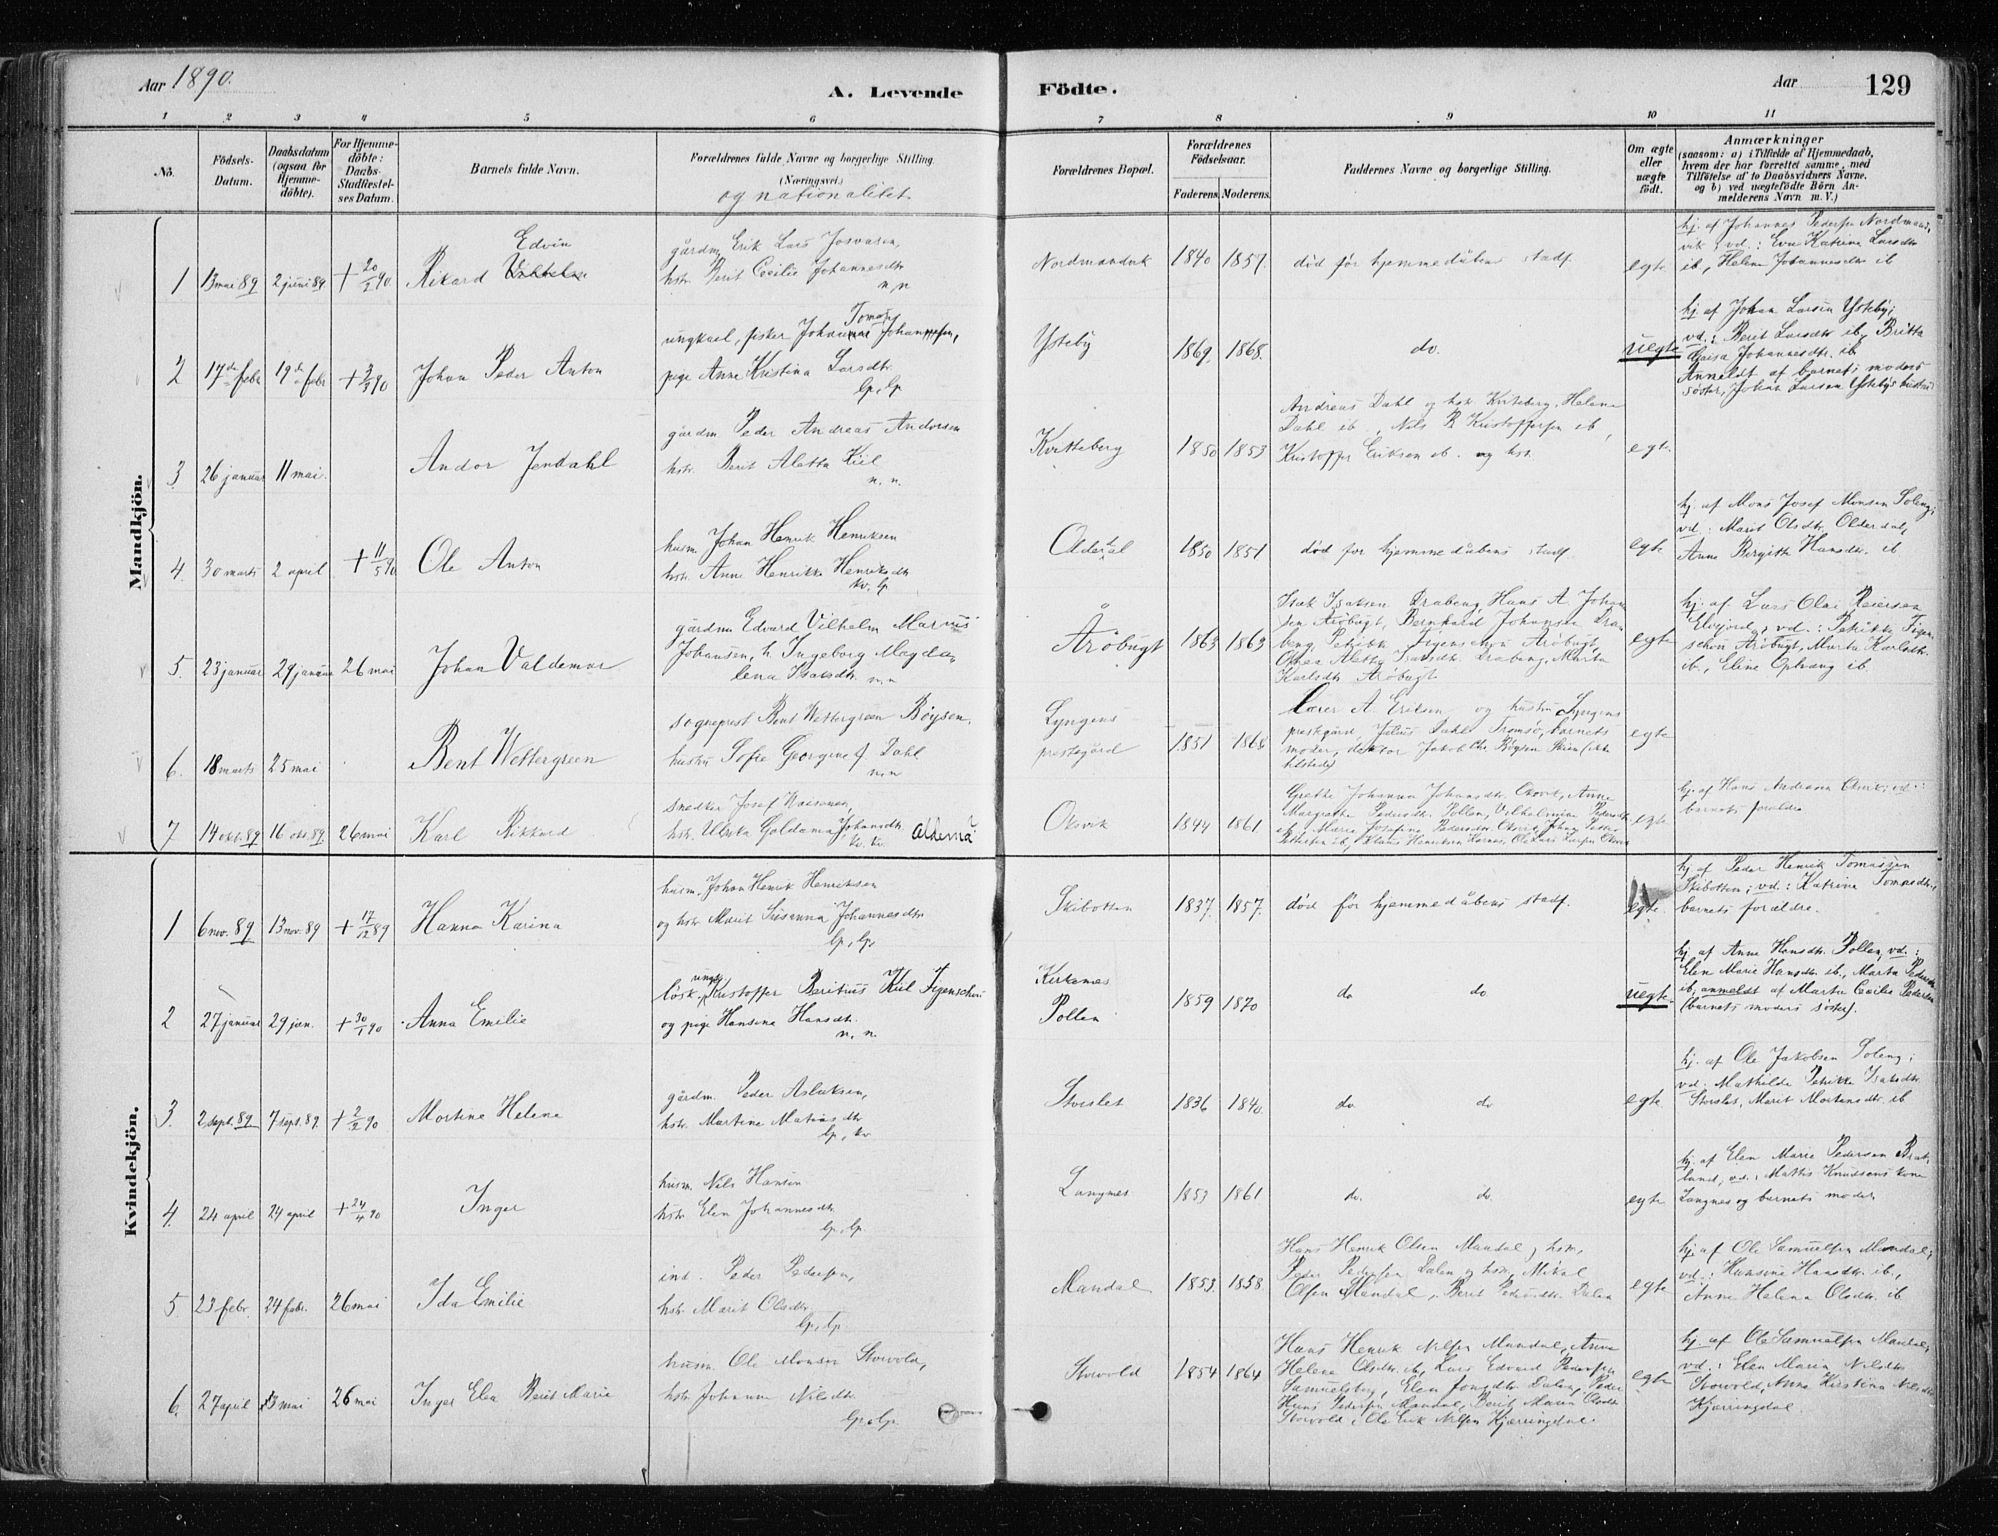 Aar 1890.
A. Levende
Födte.
Aar
129
1 2 3 4 5 6 7 8 9 10 11
No.
Födsels-
Datum.
Daabsdatum
(ogsaa for
Hjemme-
döbte).
For Hjemme-
döbte:
Daabs-
Stadfæstel-
ses Datum.
Barnets fulde Navn.
Forældrenes fulde Navne og borgerlige Stilling.
(Næringsvei.)
og nationalitet.
Forældrenes Bopæl.
Forældrenes
Födselsaar.
Faderens. Moderens.
Faddernes Navne og borgerlige Stilling.
Om ægte
eller
uægte
födt.
Anmærkninger
(saasom: a) i Tilfælde af Hjemmedaab,
hvem der har forrettet samme, med
Tilföielse af to Daabsvidners Navne.
og b) ved uægtefödte Börn An-
melderens Navn m. V.)
Mandkjön.
Edvin
1 13 mai 89 2 juni 89 + 20/2 90 Rikard
gårdm. Erik Lars Josvasen,
hstr. Berit Cecilie Johannesdtr.
n, n
Nordmandvik 1840 1857. død før hjemmedåbens stadf. egte
hj. af Johannes Pedersen Nordmand-
vik; vd.: Eva Katrina Larsdtr.
ib., Helene Johannesdtr. ib
2 17de febr 19de febr + 3/3 90 Johan Peder Anton
Tomas
ungkarl, fisker Johannes Johannessen,
pige Anne Kristina Larsdtr.
lp, lp
Ysteby 1869. 1868. do. uegte
hj. af Johan Larsen Ysteby;
vd.: Berit Larsdtr. ib, Britta
Luisa Johannesdtr. ib
Anmeldt af barnets moders
søster, Johan Larsen Ysteby's hustru
3 26 januar 11 mai. Andor Jendahl
gårdm. Peder Andreas Andersen
hstr. Berit Aletta Kiil
n. n.
Kvitteberg 1850 1853
Andreas Dahl og hstr. Kvitteberg, Helene
Dahl ib., Nils P. Kristoffersen ib,
Kristoffer Eriksen ib. og hstr.
egte.
4. 30 marts 2 april + 11/5 90 Ole Anton
husm. Johan Henrik Henriksen
hstr. Anne Henrikke Henriksdtr.
kv. lp
Olderdal 1850 1851 død før hjemmedåbens stadf. egte
hj. af Mons Josef Monsen Soleng;
vd.: Marit Olsdtr. Olderdal,
Anne Birgitte Hansdtr. ib
5. 23 januar 29 januar 26 mai Johan Valdemar
gårdm Edvard Vilhelm Marius
Johansen, h. Ingeborg Magda-
lena Isaksdtr. n, n
Årøbugt 1863 1863
Isak Isaksen Draberg, Hans A Johan
sen Årøbugt, Bernhard Johansen Dra
berg, Petrikke Figenschou Årøbugt,
Karlsdtr. Årøbugt
egte
hj. af Lars Olai Reiersen
Elvejord; vd.: Petrikke Figen-
schou Årøbugt, Marta Karlsdtr.
ib., Eline Opvang ib
6. 18 marts 25 mai Bent Wettergreen
sogneprest Bent Wettergreen Bøysen.
hustru Sofie Georgine f. Dahl
n, n
Lyngens
prestegård 1851 1868
Lærer A. Eriksen og hustru Lyngens
prestgård, Julius Dahl Tromsø, barnets
moder, doktor Jakob Chr. Bøysen Skien (ikke
tilstede)
egte
7 14 okt. 89 16 okt. 89 26 mai Karl Rikkard
snedker Josef Waisanen,
hstr. Ulrika Goldama Johansdtr. aldemå
kv. kv.
Oksvik 1844 1861
Grethe Johanna Johansdtr. Oksvik, Anne
Margrethe Pedersdtr. Pollen, Vilhelmine Pedersdtr.
ib, Marie Josefine Pedersdtr. Oksvik, Johan Peter
Pettersen ib, Klaus Henriksen Kornes, Ole Lars Larsen Oksvik
egte
hj. af Hans Andersen Oksvik; vd.:
barnets foreldre
Kvindekjön.
1 6 nov. 89 13 nov. 89 + 17/12 89 Hanna Karina
husm. Johan Henrik Henriksen
og hstr. Marit Susanna Johannesdtr.
lp, lp.
Skibotten 1837. 1857. død før hjemmedåbens stadf. egte.
hj. af Peder Henrik Tomassen
Skibotten; vd.: Katrina Tomasdtr.
barnets forældre.
2 27 januar 29 jan. + 30/1 90 Anna Emilie
ungk.
løsk. Kristoffer Beritius Kiil Figenschou
og pige Hansina Hansdtr.
n, n.
Kirkenes
Pollen 1859 1870 do do uegte.
hj. af Anne Hansdtr. Pollen, vd.:
Elen Marie Hansdtr. ib., Marta Pedersdtr.
ib, anmeldt af Martin Cecilie Pedersen
(barnets moders søster).
3 2 sept. 89 7 sept. 89 + 2/2 90 Martine Helene
gårdm. Peder Aslaksen,
hstr. Martine Matiasdtr.
lp, kv
Storslet 1836 1840. do do egte
hj. af Ole Jakobsen Soleng;
vd. Mathilde Petrikke Isaksdtr.
Storslet, Marit Mortensdtr. ib
4. 24 april 24 april + 24/4 90 Inger
husm. Nils Hansen
hstr. Elen Johannesdtr.
lp, lp.
Langnes 1853 1861 do. do. egte
hj. af Elen Marie Pedersen Brat-
lund, vd.: Mattis Knudsens kone
Langnes og barnets moder
5 23 febr. 24 febr. 26 mai Ida Emilie
ind. Peder Pedersen,
hstr. Marit Olsdtr.
lp, lp.
Mandal 1853. 1858
Hans Henrik Olsen Mandal, hstr.,
Peder Pedersen Dalen og hstr., Mikal
Olsen Mandal, Berit Pedersdtr. Dalen
egte
hj. af Ole Samuelsen Mandal;
vd.: Hansine Hansdtr. ib.,
Anne Helena Olsdtr. ib
6. 27 april 3 mai 26 mai Inger Elen Berit Marie
husm. Ole Monsen Storvold,
hstr. Johanne Nilsdtr.
lp, lp.
Storvold 1854 1864
Hans Henrik Nilsen Mandal, Anne
Helene Olsdtr. ib, Lars Edvard Pedersen
Samuelsberg, Elen Jonsdtr. Dalen, Peder
Hans Pedersen Mandal, Berit Maria Olsdtr.
Storvold, Ole Erik Nilsen Kjærringdal.
egte
hj. af Ole Samuelsen Mandal;
vd.: Elen Maria Nilsdtr.
Storvold, Anne Kirstina Nilsdtr.
Kjærringdal.